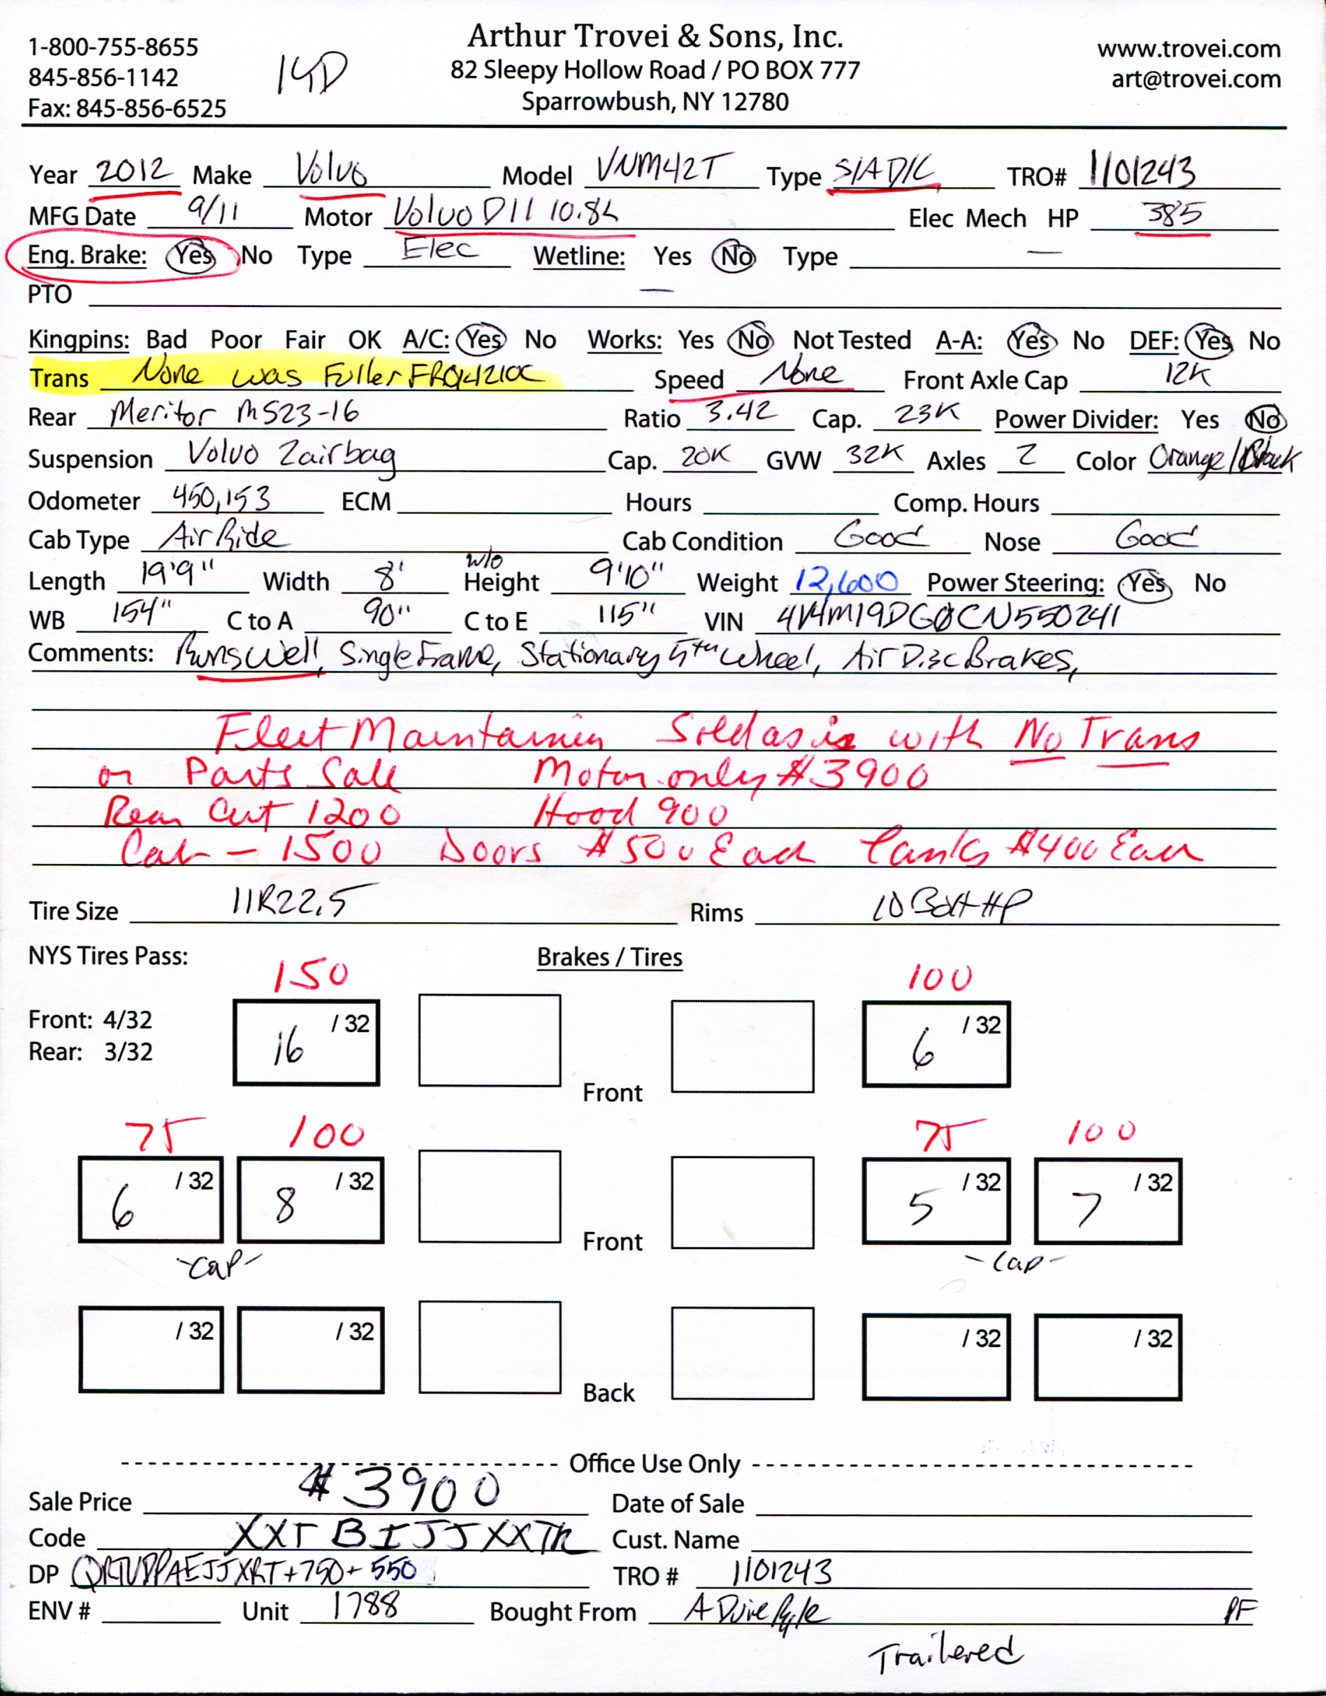 1-800-755-8655
845-856-1142
Fax: 845-856-6525
14D
Arthur Trovei & Sons, Inc.
82 Sleepy Hollow Road / PO BOX 777
Sparrowbush, NY 12780
www.trovei.com
art@trovei.com
Year 2012 Make Volvo Model VNM42T Type S/A D/C TRO# 1101243
MFG Date 9/11 Motor Volvo D11 10.8L Elec Mech HP 385
Eng. Brake: Yes No Type Elec Wetline: Yes No Type —
PTO —
Kingpins: Bad Poor Fair OK A/C: Yes No Works: Yes No Not Tested A-A: Yes No DEF: Yes No
Trans None was Fuller FRO14210C Speed None Front Axle Cap 12K
Rear Meritor MS23-16 Ratio 3.42 Cap. 23K Power Divider: Yes No
Suspension Volvo 2airbag Cap. 20K GVW 32K Axles 2 Color Orange/Black
Odometer 450,153 ECM Hours Comp. Hours
Cab Type Air Ride Cab Condition Good Nose Good
Length 19'9" Width 8' w/o Height 9'10" Weight 12,600 Power Steering: Yes No
WB 154" C to A 90" C to E 115" VIN 4V4M19DG0CN550241
Comments: Runs Well, Single Frame, Stationary 5th Wheel, Air Disc Brakes,
Fleet Maintainien Sold as is with No Trans
or Parts Sale Motor only $3900
Rear Cut 1200 Hood 900
Cab - 1500 Doors $500 Each Tanks $400 Each
Tire Size 11R22.5 Rims 10 Bolt HP
NYS Tires Pass: Brakes / Tires
150 100
Front: 4/32
Rear: 3/32
16 /32 6 /32
Front
75 100 75 100
6 /32 8 /32 5 /32 7 /32
Front
-Cap- -Cap-
/32 /32 /32 /32
Back
Office Use Only
Sale Price $3900 Date of Sale
Code XXTBIJJXXTR Cust. Name
DP QRTUDPAEJJXRT+750+550 TRO # 1101243
ENV # Unit 1788 Bought From PF
Trailered